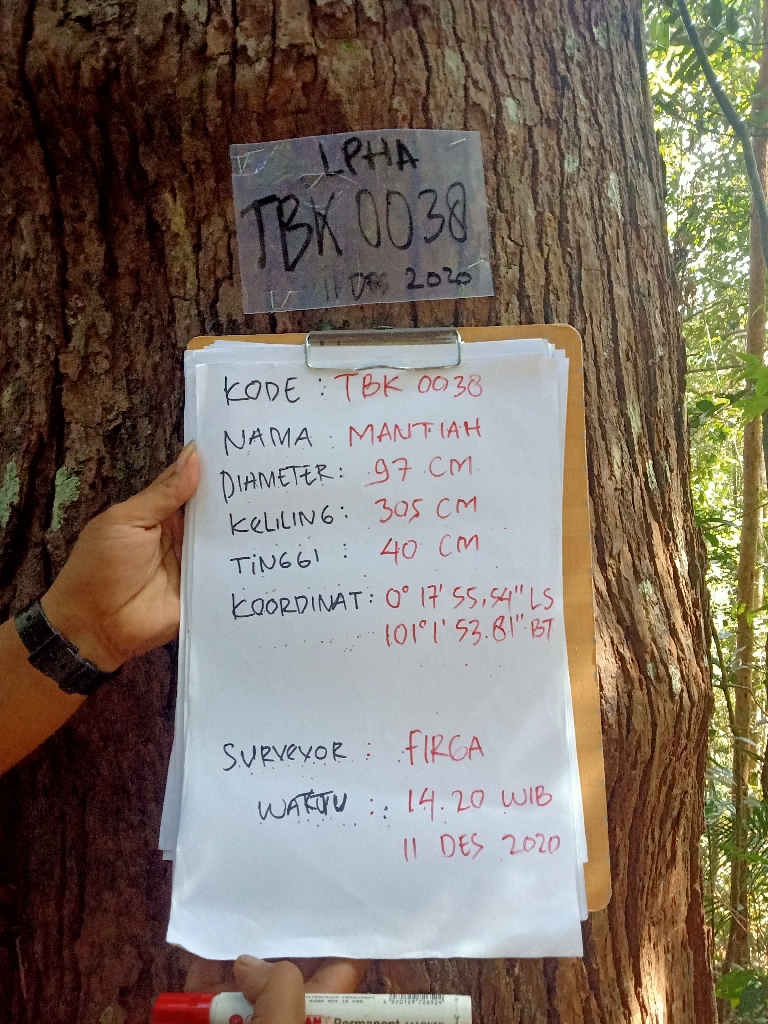 LPHA
TBK 0038
11 DES 2020
KODE : TBK 0038
NAMA : MANTIAH
DIAMETER : 97 CM
KELILING : 305 CM
TINGGI : 40 CM
KOORDINAT : 0° 17' 55.54" LS
101° 1' 53.81" BT
SURVEYOR : FIRGA
WAKTU : 14.20 WIB
11 DES 2020
Permanent MARKER